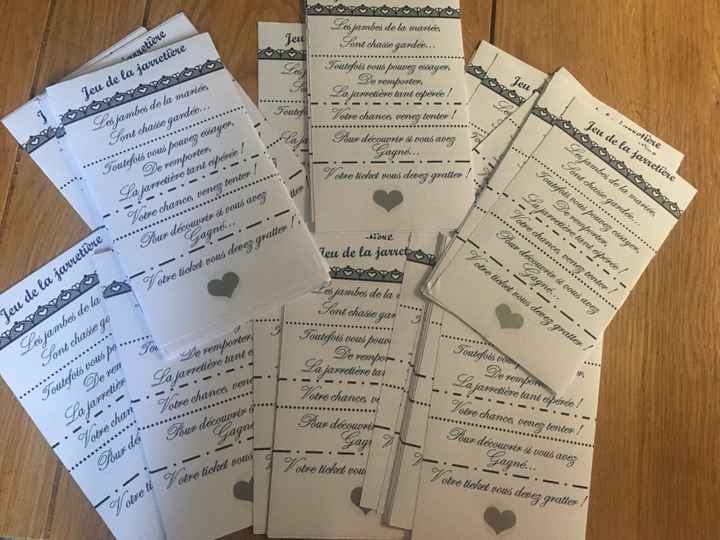 Jeu de la jarretière
Les jambes de la mariée,
Sont chasse gardée...
Toutefois vous pouvez essayer,
De remporter,
La jarretière tant espérée !
Votre chance, venez tenter !
Pour découvrir si vous avez
Gagné...
Votre ticket vous devez gratter !
Jeu de la jarretière
Les jambes de la mariée,
Sont chasse gardée...
Toutefois vous pouvez essayer,
De remporter,
La jarretière tant espérée !
Votre chance, venez tenter !
Pour découvrir si vous avez
Gagné...
Votre ticket vous devez gratter !
Jeu de la
Les jambes de la mariée,
Sont chasse gardée...
Toutefois vous pouvez essayer,
De remporter,
La jarretière tant espérée !
Votre chance, venez tenter !
Pour découvrir si vous avez
Gagné...
Votre ticket vous devez gratter !
Jeu de la
Jeu de la jarretière
Les jambes de la
Sont chasse gardée
Toutefois vous pouvez
De remporter,
La jarretière
Votre chance,
Pour découvrir
Gagné
Votre ticket
De remporter,
La jarretière tant espérée !
Votre chance, venez tenter !
Pour découvrir si vous avez
Gagné...
Votre ticket vous devez gratter !
Jeu de la jarretière
Les jambes de la mariée,
Sont chasse gardée...
Toutefois vous pouvez
De remporter,
La jarretière tant espérée !
Votre chance, venez
Pour découvrir si vous
Gagné...
Votre ticket vous devez
Toutefois vous pouvez essayer,
De remporter,
La jarretière tant espérée !
Votre chance, venez tenter !
Pour découvrir si vous avez
Gagné...
Votre ticket vous devez gratter !